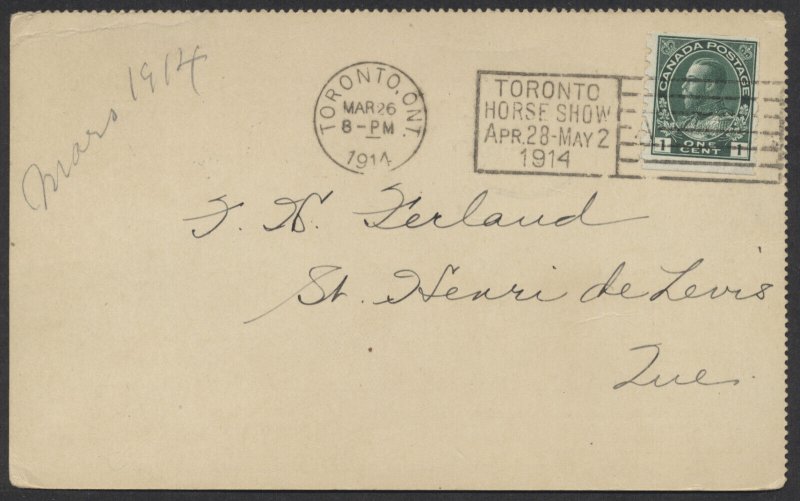 Mars 1914
TORONTO, ONT.
MAR 26
8-PM
1914
TORONTO
HORSE SHOW
APR. 28-MAY 2
1914
CANADA POSTAGE
1 ONE CENT 1
F. N. Ferland
St. Henri de Levis
Que.